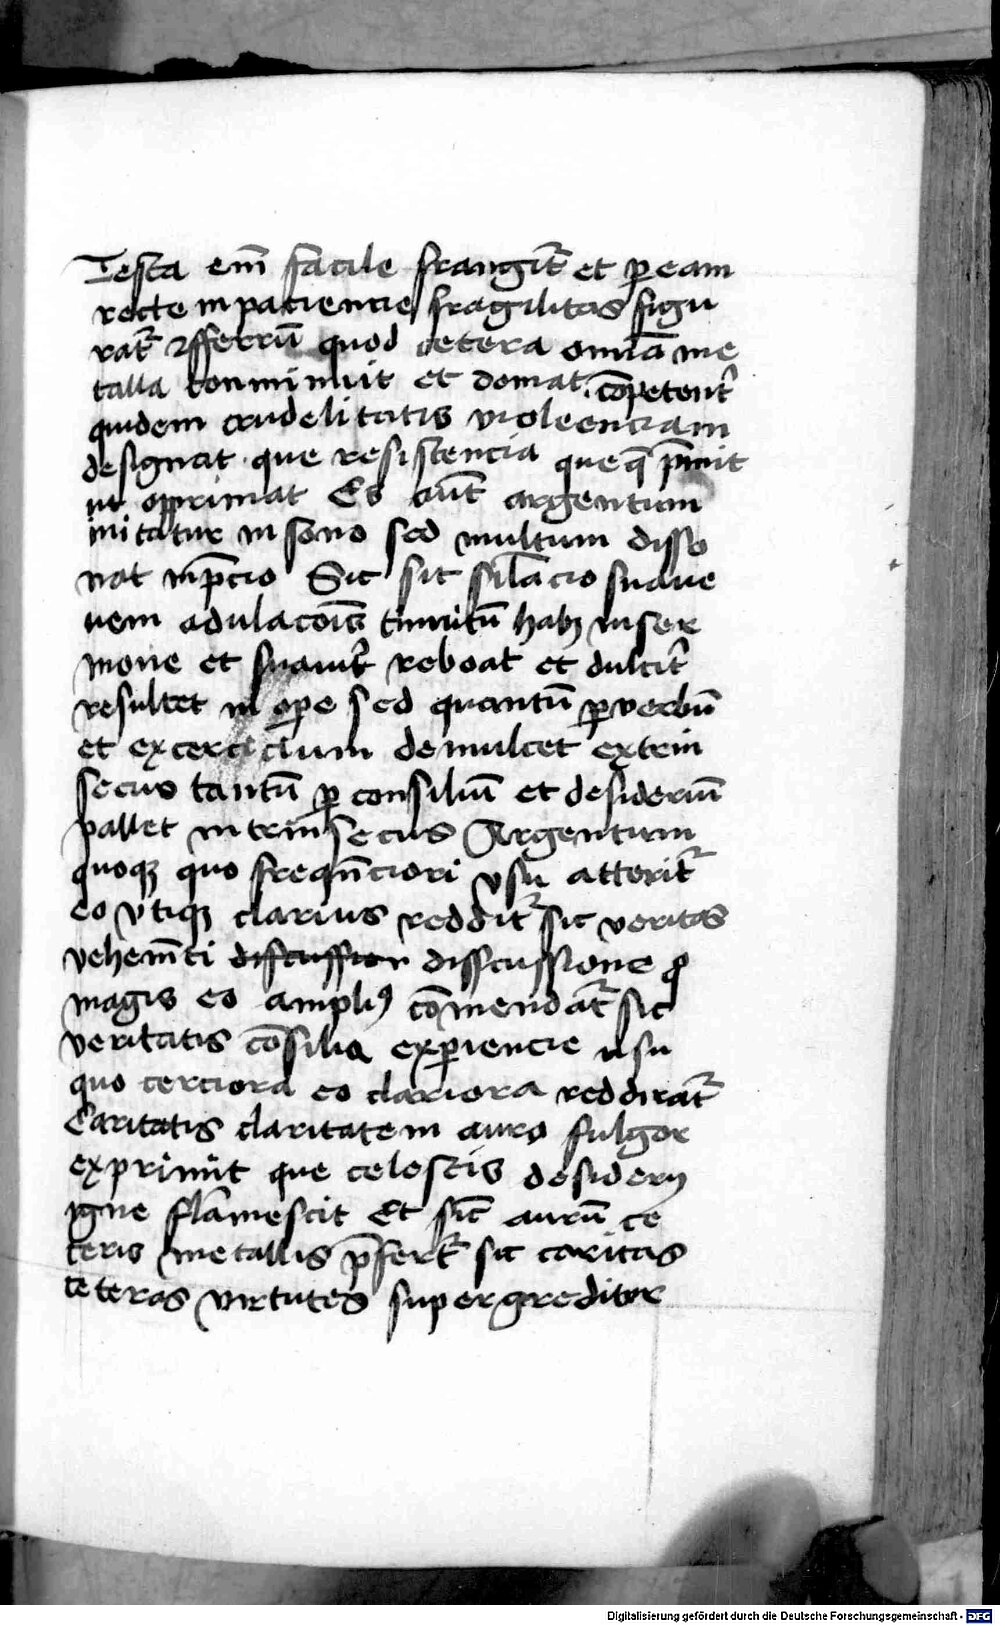 Testa em̄ facile frangit᷑ et ꝑ eam
recte inpaciencie fragilitas figu
rat᷑ ⁊ fferrū quod cetera omīa me
talla conminuit et domat. cōpetent᷑
quidem crudelitatis violeenciam
designat. que resistencia que q̄ p̄mit
ut opprimat Es aūt argentum
imitatur in sono sed multum disso
nat in p̄cio Sic sit sil̄acio suaue
uem adulacōis tinnitū habꝫ in ser
mone et suauit᷑ reboat et dulcit᷑
resultet in oꝑe sed quantū ꝑ verbū
et excercicium demulcet extrin
secus tantū ꝑ consiliū et desideriū
pallet intrinsecus Argentum
quoqꝫ quo freqn̄ciori vsu atterit᷑
eo vtiqꝫ clarius reddit᷑ sic veritas
vehem̄ti discussion disscussione ꝓ
magis eo ampliꝰ cōmendat᷑ sic
veritatis cōsilia exꝑiencie usu
quo cerciora eo clariora reddirat᷑
Caritatis claritatem auro fulgor
exprimit que celestis desiderij
igne flāmescit Et sic̄ aurū ce
teris metallis p̄fert᷑ sic caritas
ceteras virtutes supergreditor
Digitalisierung gefördert durch die Deutsche Forschungsgemeinschaft - DFG